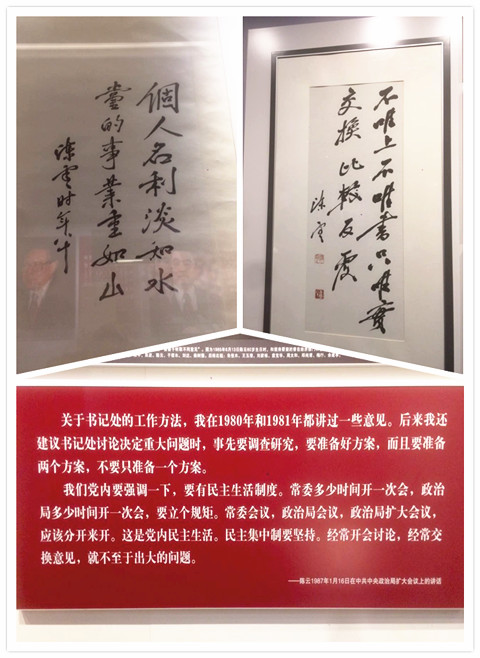 個人名利淡如水
黨的事業重如山
陳雲时年
不唯上不唯書只唯實
交換比較反復
陳雲
关于书记处的工作方法，我在1980年和1981年都讲过一些意见。后来我还
建议书记处讨论决定重大问题时，事先要调查研究，要准备好方案，而且要准备
两个方案，不要只准备一个方案。
我们党内要强调一下，要有民主生活制度。常委多少时间开一次会，政治
局多少时间开一次会，要立个规矩。常委会议，政治局会议，政治局扩大会议，
应该分开来开。这是党内民主生活。民主集中制要坚持。经常开会讨论，经常交
换意见，就不至于出大的问题。
——陈云1987年1月16日在中共中央政治局扩大会议上的讲话